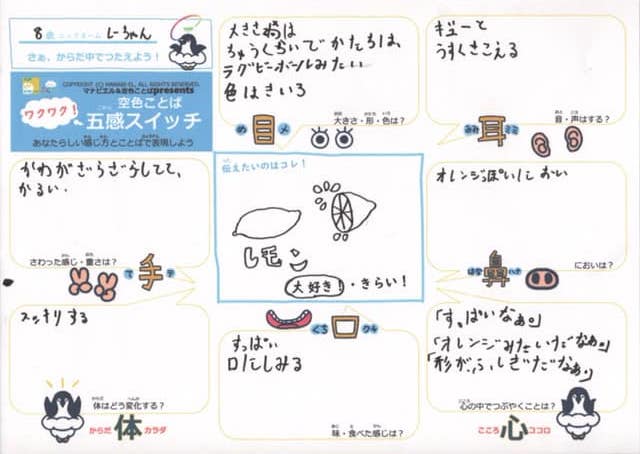 8才 ニックネーム しーちゃん
さぁ、からだ中でつたえよう！
COPYRIGHT (C) MANABI-EL, ALL RIGHTS RESERVED.
マナビエル&空色ことばpresents
ワクワク！
空色ことば
五感スイッチ
ごかん
あなたらしい感じ方とことばで表現しよう
大きさは
ちゅうくらいで かたちは、
ラグビーボールみたい
色はきいろ
大きさ・形・色は？
め 目 メ
ギューと
うすくきこえる
音・声はする？
みみ 耳 ミミ
かわがざらざらしてて、
かるい.
さわった感じ・重さは？
て 手 テ
伝えたいのはコレ！
レモン
大好き！・きらい！
オレンジっぽいにおい
においは？
はな 鼻 ハナ
スッキリする
体はどう変化する？
からだ 体 カラダ
くち 口 クチ
すっぱい
口にしみる
味・食べた感じは？
「すっぱいなぁ。」
「オレンジみたいだなぁ。」
「形がふしぎだなぁ。」
心の中でつぶやくことは？
こころ 心 ココロ